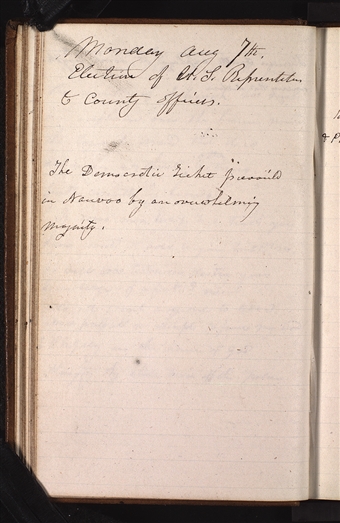 Monday Aug 7th.
Election of U. S. Represntatives
& County officers.
The Democratic Ticket prevaild
in Nauvoo by an overwhelming
majority.
& P